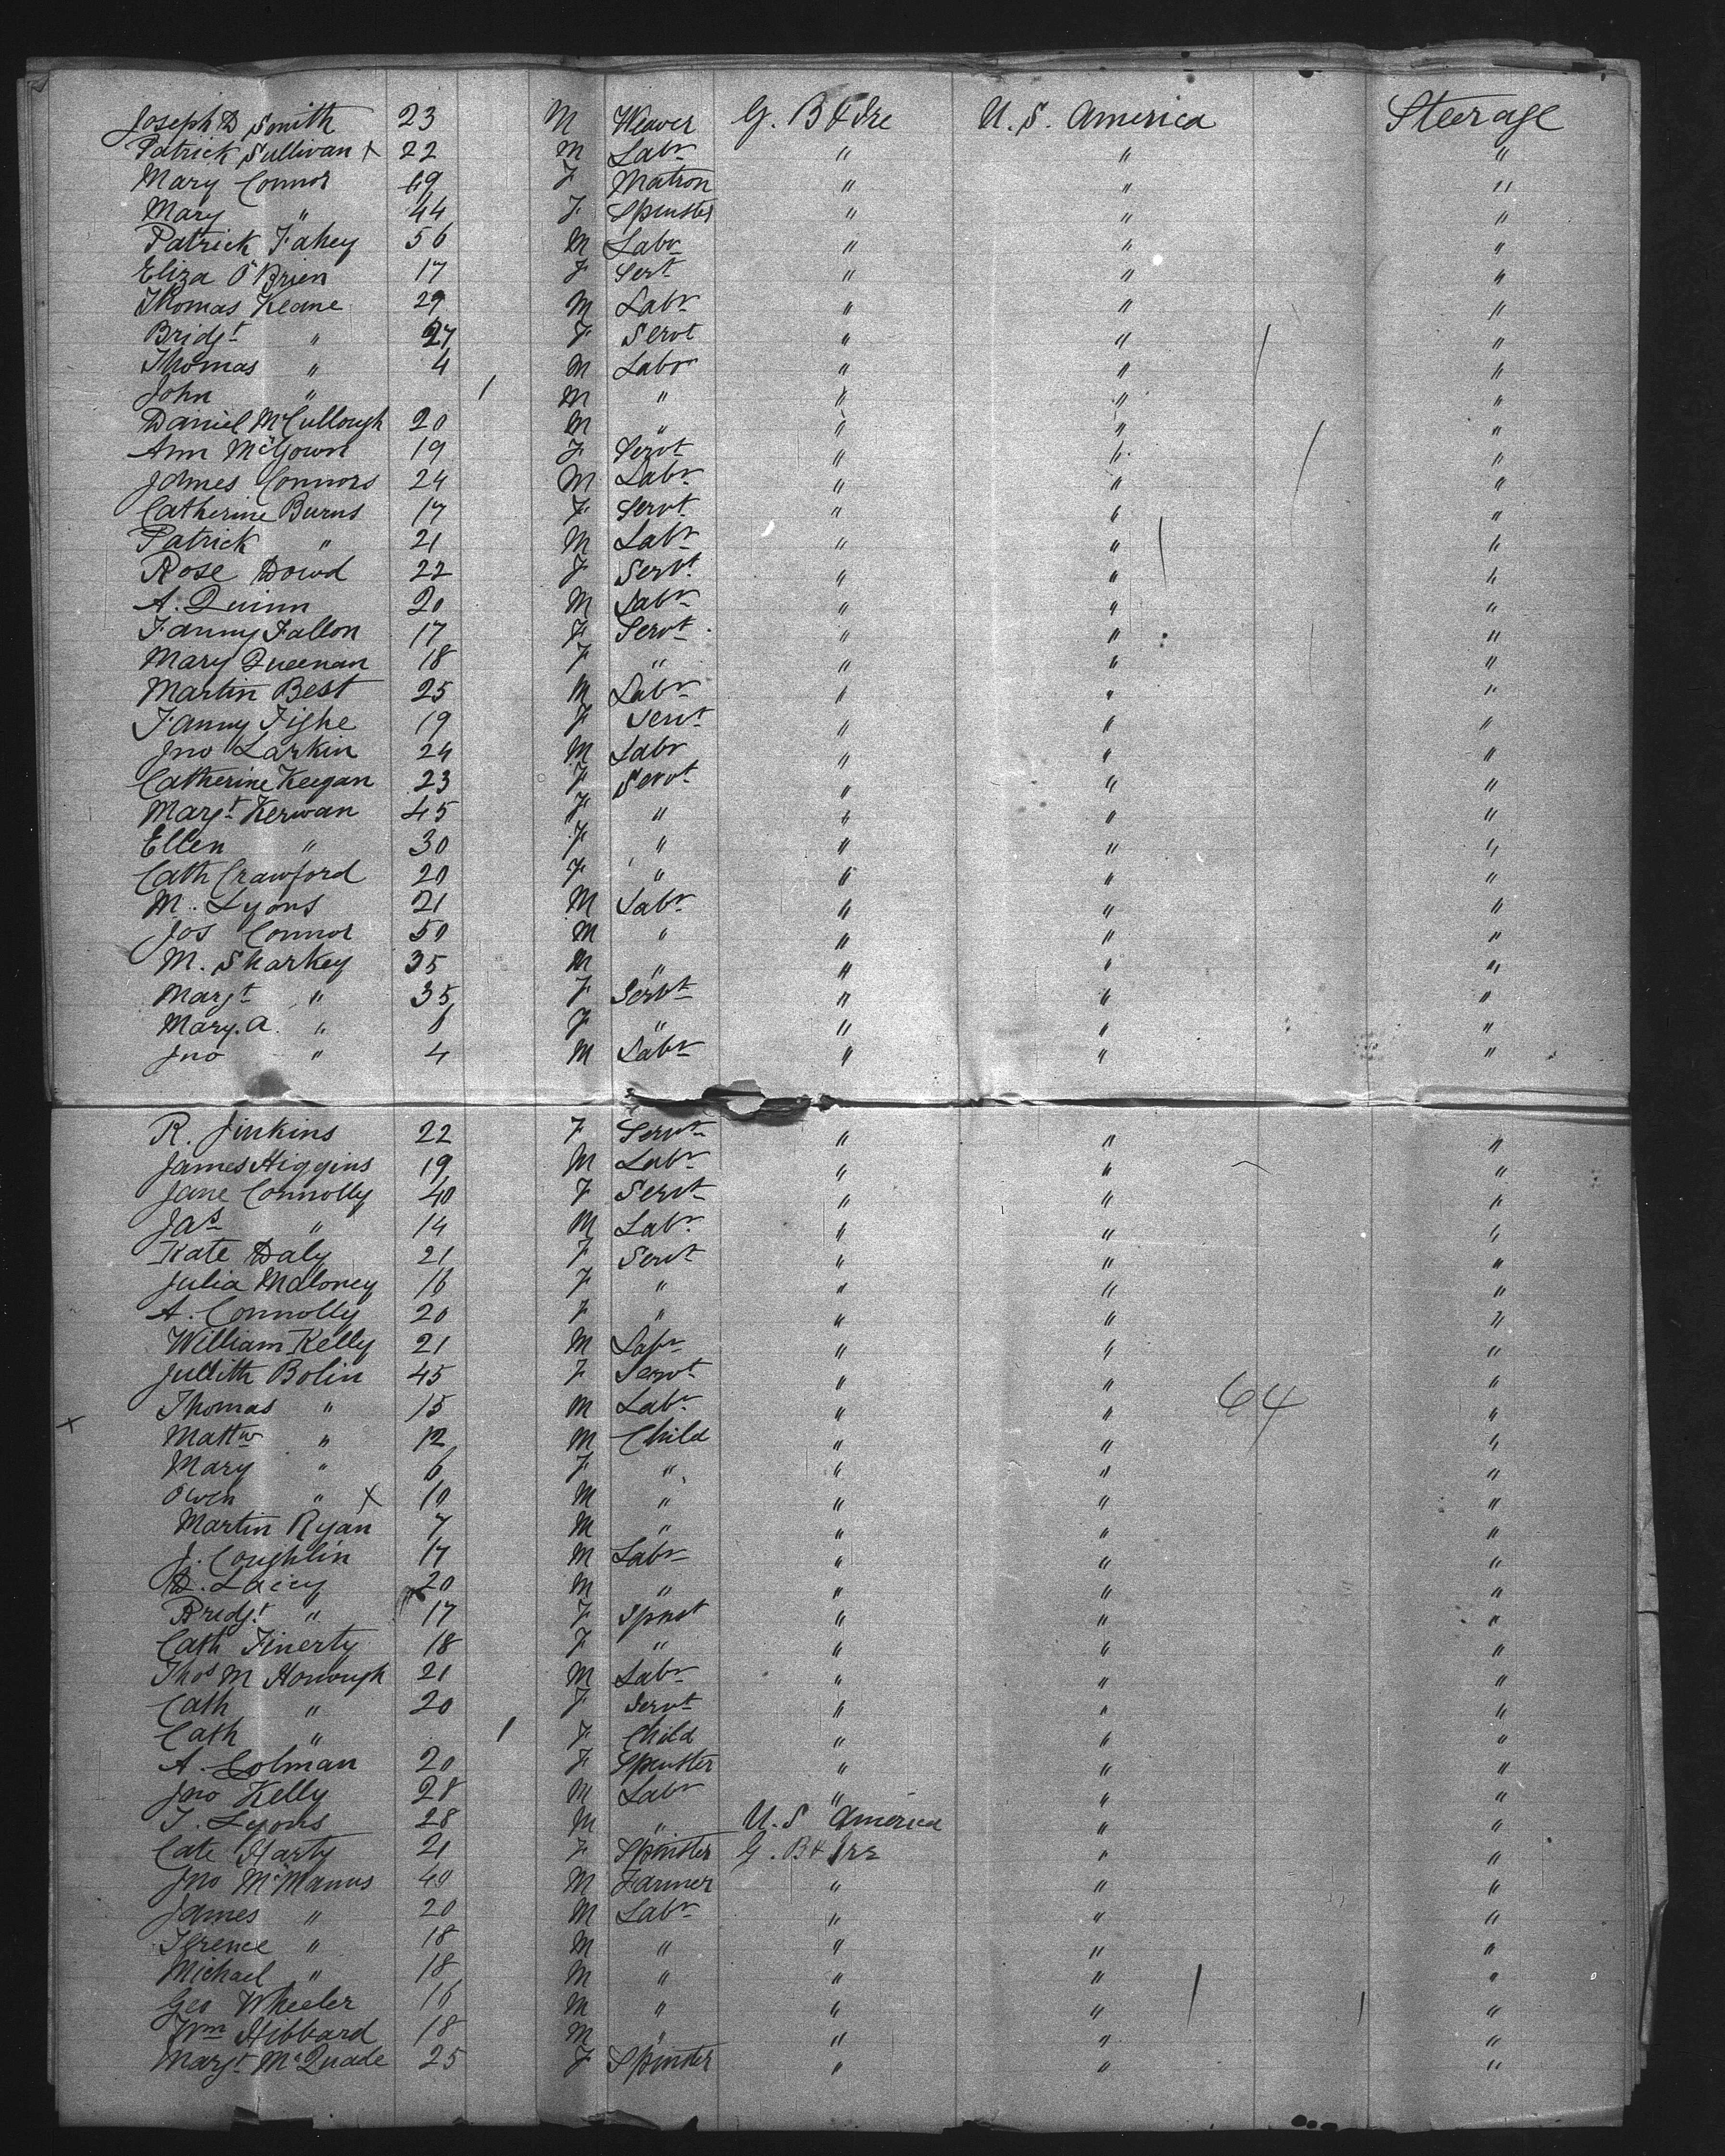 Joseph D Smith 23 M Weaver G. B & Ire U. S. America Steerage
Patrick Sullivan x 22 M Labr " " "
Mary Connor 49 F Matron " " "
Mary " 44 F Spinster " " "
Patrick Fahey 56 M Labr " " "
Eliza O'Brien 17 F Sert " " "
Thomas Keane 29 M Labr " " "
Bridgt " 27 F Servt " " "
Thomas " 4 M Labr " " "
John " 1 M " " " "
Daniel McCullough 20 M " " " "
Ann McGown 19 F Servt " " "
James Connors 24 M Labr " " "
Catherine Burns 17 F Servt " " "
Patrick " 21 M Labr " " "
Rose Dowd 22 F Servt " " "
A. Quinn 20 M Labr " " "
Fanny Fallon 17 F Servt " " "
Mary Queenan 18 F " " " "
Martin Best 25 M Labr " " "
Fanny Tighe 19 F Servt " " "
Jno Larkin 24 M Labr " " "
Catherine Keegan 23 F Servt " " "
Margt Kerwan 45 F " " " "
Ellen " 30 F " " " "
Cath Crawford 20 F " " " "
M. Lyons 21 M Labr " " "
Jos Connor 50 M " " " "
M. Sharkey 35 M " " " "
Margt " 35 F Servt " " "
Mary. A. " 6 F " " " "
Jno " 4 M Labr " " "
R. Jinkins 22 F Servt " " "
James Higgins 19 M Labr " " "
Jane Connolly 40 F Servt " " "
Jas " 14 M Labr " " "
Kate Daly 21 F Servt " " "
Julia Maloney 16 F " " " "
A. Connolly 20 F " " " "
William Kelly 21 M Labr " " "
Judith Bolin 45 F Servt " " "
Thomas " 15 M Labr " 64 " "
x Mattw " 12 M Child " " "
Mary " 6 F " " " "
Owen " x 10 M " " " "
Martin Ryan 7 M " " " "
J. Coughlin 17 M Labr " " "
D. Lacey 20 M " " " "
Bridgt " 17 F Spnst " " "
Cath Finerty 18 F " " " "
Thos M Honough 21 M Labr " " "
Cath " 20 F Servt " " "
Cath " 1 F Child " " "
A. Colman 20 F Spinster " " "
Jno Kelly 28 M Labr " " "
T. Lyons 28 M " U. S America " "
Cate Harty 21 F Spinster G. B & Ire " "
Jno McManus 40 M Farmer " " "
James " 20 M Labr " " "
Terence " 18 M " " " "
Michael " 18 M " " " "
Geo Wheeler 16 M " " " "
Wm Hibbard 18 M " " " "
Margt McQuade 25 F Spinster " " "